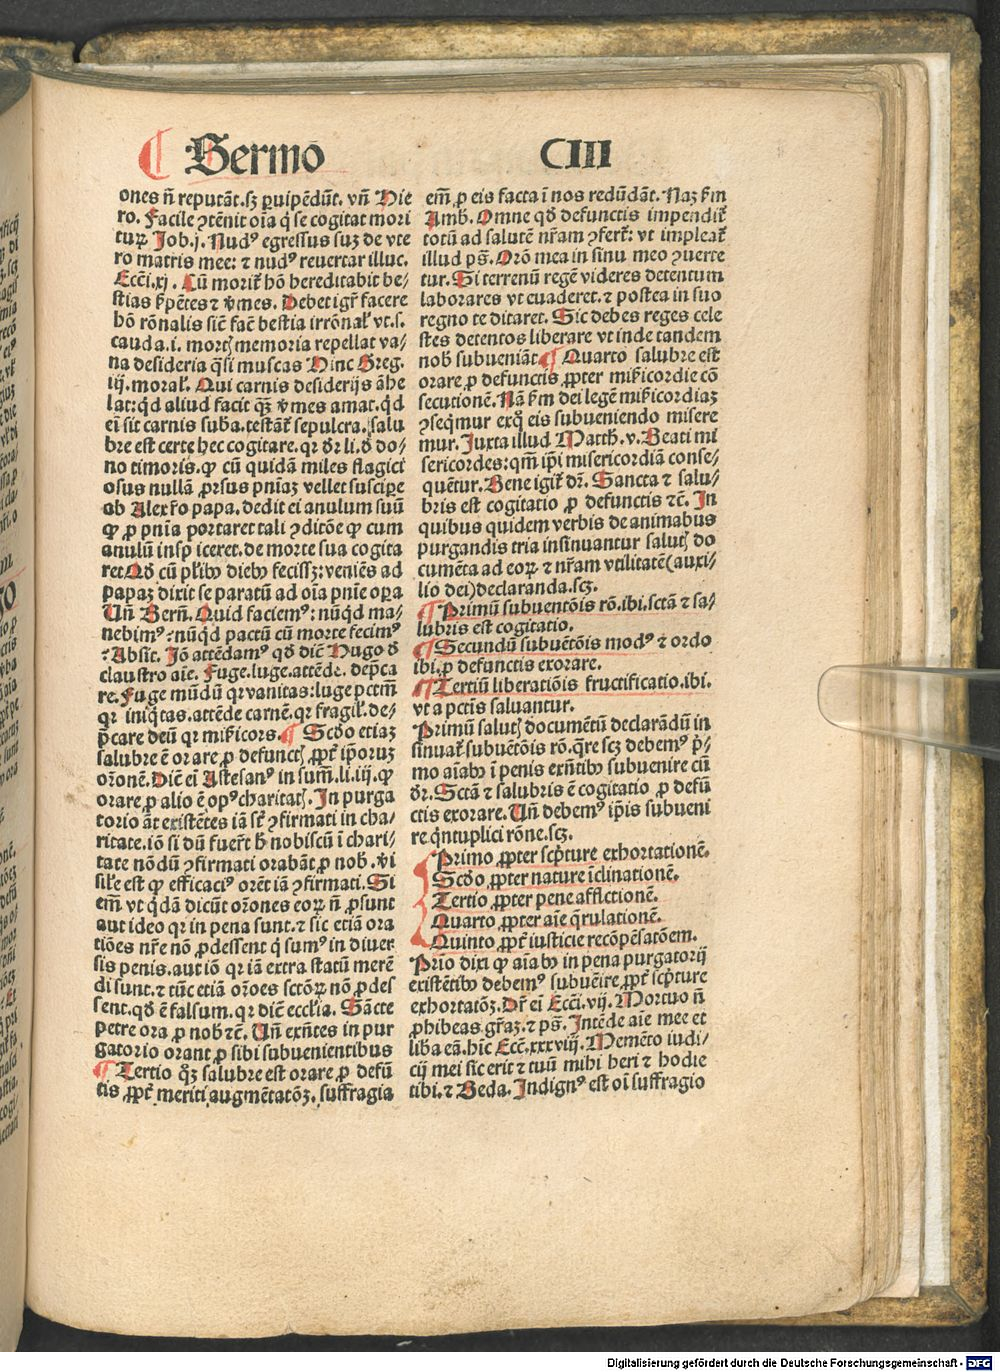 ¶ Sermo̅ CIII
ones n̄ reputāt.sꝫ ꝑuipēdūt. vn̄ Hie
ro. Facile ꝯtēnit oīa q̇ se cogitat mori
turꝝ Job.j. Nudꝰ egressus suꝫ de vte
ro matris mee: ⁊ nudꝰ reuertar illuc.
Ecc̄i.xj. Cū morit᷑ hō hereditabit be⸗
stias ẜpētes ⁊ v̇mes. Debet igr̄ facere
hō rōnalis sic̄ fac̄ bestia irrōnal̓ vt.s.
cauda.i. mortꝭ memoria repellat va⸗
na desideria q̄si muscas Hinc Greg.
iij. moral̓. Qui carnis desiderijs āhe
lat: qd̓ aliud facit q̄ꝫ v̇mes amat. qd̓
eī sit carnis suba̅. testāt᷑ sepulcra. salu
bre est certe hec cogitare. qꝛ dr̄ li. d̓ do⸗
no timoris. ꝙ cū quidā miles flagici
osus nullā ꝓrsus pn̄iaꝫ vellet suscipe
ab Alexr̄o papa. dedit ei anulum suū
ꝙ ꝓ pn̄ia portaret tali ꝯditōe ꝙ cum
anulū insꝑiceret. de morte sua cogita
ret Qd̓ cū pl̓ibꝰ diebꝰ fecissꝫ: veniēs ad
papaꝫ dixit se paratū ad oīa pn̄ie oꝑa
Un̄ Bern̄. Quid faciemꝰ: nūqd̓ ma⸗
nebimꝰ: nūqd̓ pactū cū morte fecimꝰ
: Absit. Jō attēdamꝰ qd̓ dic̄ Hugo d̓
claustro aīe. Fuge. luge. attēde. dep̄ca
re. Fuge mūdū qꝛ vanitas: luge pctm̄
qꝛ iniq̇tas. attēde carnē. qꝛ fragil̓. de⸗
p̄care deū qꝛ mīẜicors. ¶ Scd̓o etiaꝫ
salubre ē orare ꝓ defunctꝭ ꝓpt̓ ip̄oꝝ
or̄onē. Dic̄ eī Astesanꝰ in summ̄. li. iij. ꝙ
orare ꝓ alio ē opꝰ charitatꝭ. In purga
torio āt existētes iā sr̄t ꝯfirmati in cha⸗
ritate. iō si dū fuer̄t h̓ nobiscū ī chari⸗
tate nōdū ꝯfirmati orabāt ꝓ nob̓. v̇i
sil̓e est ꝙ efficaciꝰ orēt iā ꝯfirmati. Si
em̄ vt q̇dā dicūt or̄ones eoꝝ n̄ ꝓsunt
aut ideo qꝛ in pena sunt. ⁊ sic etiā ora
tiōes nr̄e nō ꝓdessent q̇ sumꝰ in diuer
sis penis. aut iō qꝛ iā extra statū merē
di sunt. ⁊ tūc etiā or̄oes sctōꝝ nō ꝓdes
sent. qd̓ ē falsum. qꝛ dic̄ eccl̓ia. Sācte
petre ora ꝓ nob̓ ⁊c̄. Un̄ exn̄tes in pur
gatorio orant ꝓ sibi subuenientibus
¶ Tertio q̓ꝫ salubre est orare ꝓ defū
tis ꝓpt̓ meriti augmētatōꝫ. suffragia
em̄ ꝓ eis facta ī nos redūdāt. Naꝫ ẜm
Amb. Omne qd̓ defunctis impendit᷑
totū ad salutē nr̄am ꝯfert᷑: vt impleat᷑
illud ps̄. Orō mea in sinu meo ꝯuerte
tur. Si terrenū regē videres detentum
laborares vt euaderet. ⁊ postea in suo
regno te ditaret. Sic debes reges cele
stes detentos liberare vt inde tandem
nob̓ subueniāt ¶ Quarto salubre est
orare ꝓ defunctis ꝓpter miẜicordie cō
secutionē. Nā ẜm dei legē miẜicordiaꝫ
ꝯseq̄mur exq̓ eis subueniendo misere
mur. Juxta illud Matth. v. Beati mi
sericordes: qm̄ ip̄i misericordiā conse⸗
quētur. Bene igit᷑ dr̄. Sancta ⁊ salu⸗
bris est cogitatio ꝓ defunctis ⁊c̄. In
quibus quidem verbis de animabus
purgandis tria insinuantur salutꝭ do
cumēta ad eoꝝ ⁊ nr̄am vtilitatē (auxi⸗
lio dei) declaranda. scꝫ.
¶ Primū subuentōis rō. ibi. sctā ⁊ sa⸗
lubris est cogitatio.
¶ Secundū subuētōis modꝰ ⁊ ordo
ibi. ꝓ defunctis exorare.
¶ Tertiū liberatiōis fructificatio. ibi.
vt a pctīs saluantur.
Primū salutꝭ documētū declarādū in
sinuat᷑ subuētōis rō. q̄re scꝫ debemꝰ p̓⸗
mo aīabꝰ ī penis exn̄tibꝰ subuenire cū
dr̄. Sctā ⁊ salubris ē cogitatio ꝓ defū
ctis exorare. Un̄ debemꝰ ip̄is subueni
re q̇ntuplici rōne. scꝫ.
Primo ꝓpter scp̄ture exhortationē.
Scd̓o ꝓpter nature īclinationē.
Tertio ꝓpter pene afflictionē.
Quarto ꝓpter aīe q̄rulationē.
Quinto ꝓpt̓ iusticie recōpēsatōem.
Prīo dixi ꝙ aīabꝰ in pena purgatorij
existētibꝰ debemꝰ subuēire ꝓpt̓ scp̄ture
exhortatōꝫ. Dr̄ eī Ecc̄i. vij. Mortuo n̄
ꝓhibeas gr̄aꝫ. ⁊ ps̄. Intēde aīe mee et
libā eā. hīc Ecc̄. xxxviij. Memēto iudi⸗
cij mei sic erit ⁊ tuū mihi heri ⁊ hodie
tibi. ⁊ Beda. Indignꝰ est oī suffragio
Digitalisierung gefördert durch die Deutsche Forschungsgemeinschaft - DFG